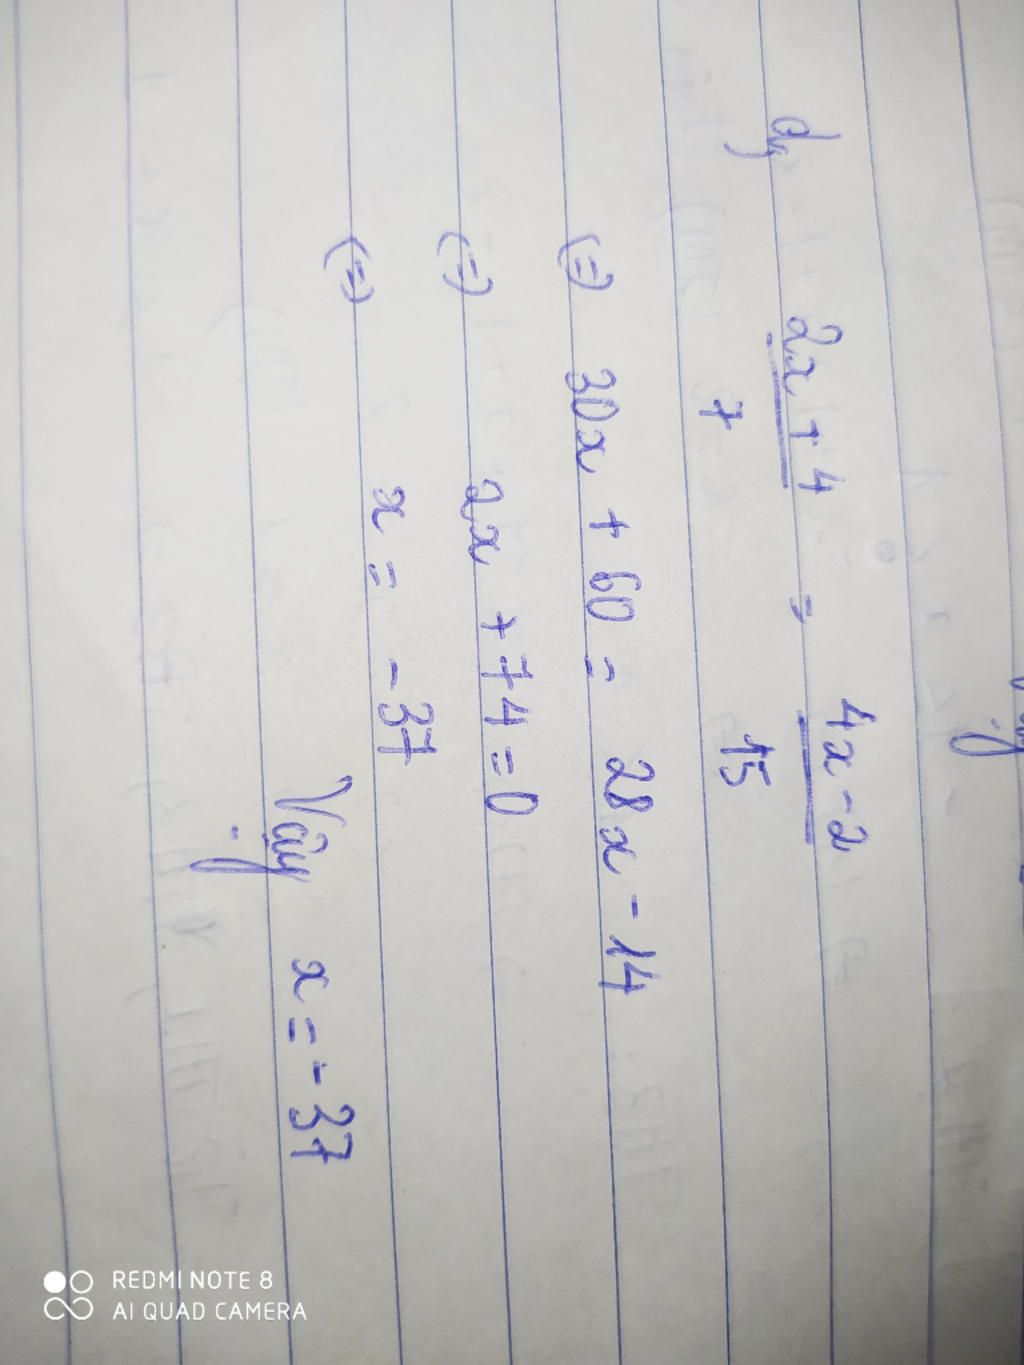 d, 2x + 4 = 4x - 2
7 15
(=) 30x + 60 = 28x - 14
(=) 2x + 74 = 0
(=) x = -37
Vậy x = -37
REDMI NOTE 8
AI QUAD CAMERA